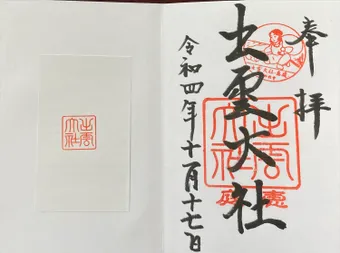 奉拝
出雲大社
令和四年十一月十七日
出雲
大社